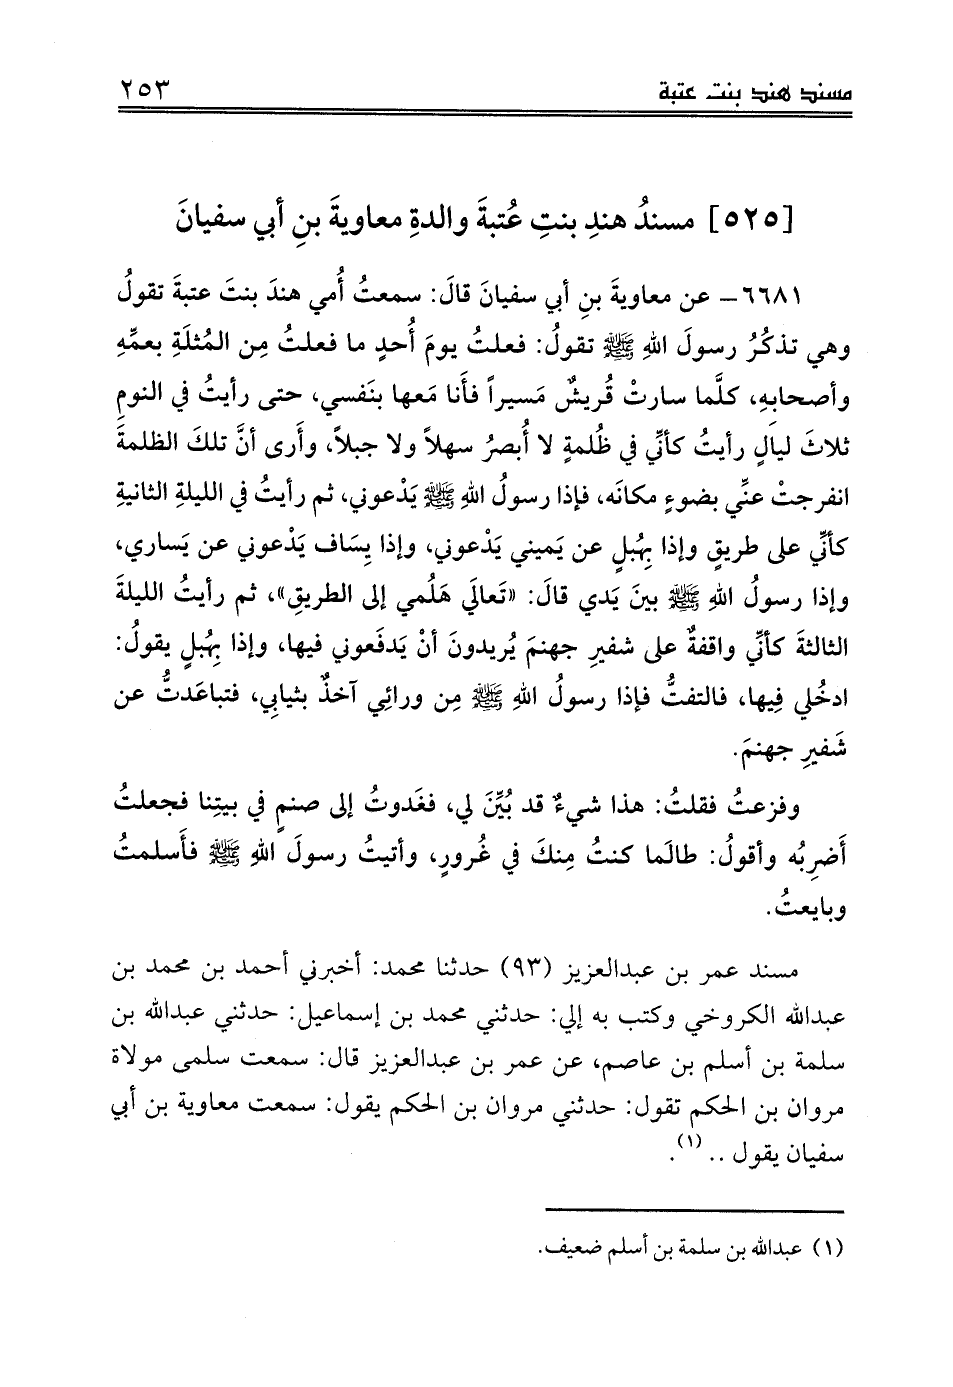 مسند هند بنت عتبة ٢٥٣
[٥٢٥] مسندُ هندِ بنتِ عُتبةَ والدةِ معاويةَ بنِ أبي سفيانَ
٦٦٨١ – عن معاويةَ بنِ أبي سفيانَ قالَ: سمعتُ أُمي هندَ بنتَ عتبةَ تقولُ
وهي تذكُرُ رسولَ اللهِ ﷺ تقولُ: فعلتُ يومَ أُحدٍ ما فعلتُ مِن المُثلَةِ بعمِّهِ
وأصحابِهِ، كلَّما سارتْ قُريشٌ مَسيراً فأَنا مَعها بنَفسي، حتى رأيتُ في النومِ
ثلاثَ ليالٍ رأيتُ كأنِّي في ظُلمةٍ لا أُبصرُ سهلاً ولا جبلاً، وأَرى أنَّ تلكَ الظلمةَ
انفرجتْ عنِّي بضوءٍ مكانَه، فإذا رسولُ اللهِ ﷺ يَدْعوني، ثم رأيتُ في الليلةِ الثانيةِ
كأنِّي على طريقٍ وإذا بِهُبلٍ عن يَميني يَدْعوني، وإذا يِسَاف يَدْعوني عن يَساري،
وإذا رسولُ اللهِ ﷺ بينَ يَدي قالَ: «تَعالَي هَلُمي إلى الطريقِ»، ثم رأيتُ الليلةَ
الثالثةَ كأنِّي واقفةٌ على شفيرِ جهنمَ يُريدونَ أنْ يَدفَعوني فيها، وإذا بِهُبلٍ يقولُ:
ادخُلي فِيها، فالتفتُّ فإذا رسولُ اللهِ ﷺ مِن ورائِي آخذٌ بثيابِي، فتباعَدتُّ عن
شَفيرِ جهنمَ.
وفزعتُ فقلتُ: هذا شيءٌ قد بُيِّنَ لي، فغَدوتُ إلى صنمٍ في بيتِنا فجعلتُ
أَضرِبُه وأقولُ: طالَما كنتُ مِنكَ في غُرورٍ، وأتيتُ رسولَ اللهِ ﷺ فأَسلمتُ
وبايعتُ.
مسند عمر بن عبدالعزيز (٩٣) حدثنا محمد: أخبرني أحمد بن محمد بن
عبدالله الكروخي وكتب به إلي: حدثني محمد بن إسماعيل: حدثني عبدالله بن
سلمة بن أسلم بن عاصم، عن عمر بن عبدالعزيز قال: سمعت سلمى مولاة
مروان بن الحكم تقول: حدثني مروان بن الحكم يقول: سمعت معاوية بن أبي
سفيان يقول .. (١).
(١) عبدالله بن سلمة بن أسلم ضعيف.